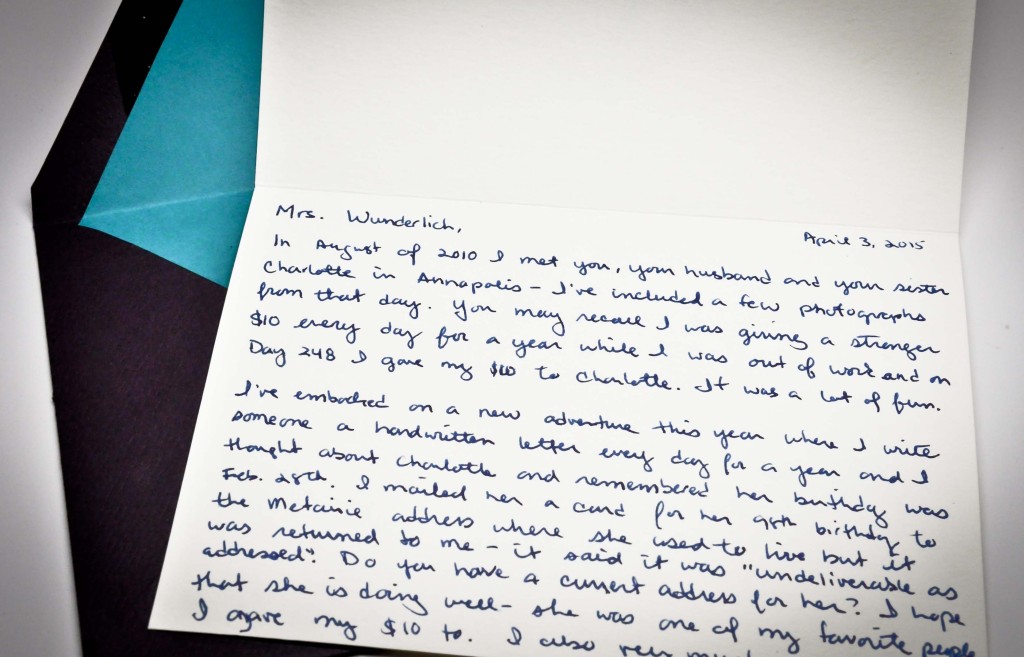 Mrs. Wunderlich,
April 3, 2015
In August of 2010 I met you, your husband and your sister
Charlotte in Annapolis – I've included a few photographs
from that day. You may recall I was giving a stranger
$10 every day for a year while I was out of work and on
Day 248 I gave my $10 to Charlotte. It was a lot of fun.
I've embarked on a new adventure this year where I write
someone a handwritten letter every day for a year and I
thought about Charlotte and remembered her birthday was
Feb. 28th. I mailed her a card for her 98th birthday to
the Metairie address where she used to live but it
was returned to me – it said it was "undeliverable as
addressed". Do you have a current address for her? I hope
that she is doing well – she was one of my favorite people
I gave my $10 to. I also very much